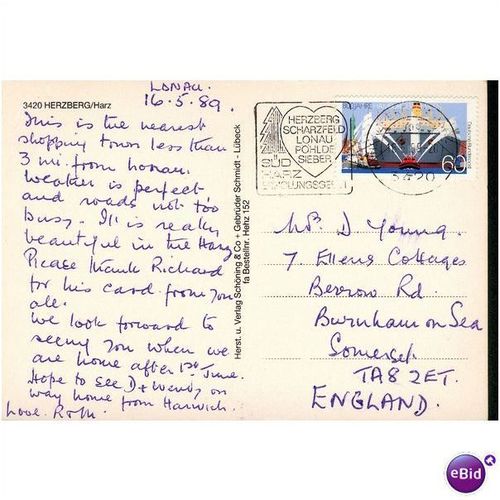 3420 HERZBERG/Harz
LONAU.
16.5.89.
This is the nearest
shopping town less than
3 mi. from Lonau.
Weather is perfect
and roads not too
busy. It is really
beautiful in the Harz
Please thank Richard
for his card from you
all.
We look forward to
seeing you when we
are home after 1st June.
Hope to see D + Wendy on
way home from Harwich.
Love.
Herst. u. Verlag Schöning & Co + Gebrüder Schmidt - Lübeck
fa Bestellnr. Hehz 152
HERZBERG
SCHARZFELD
LONAU
PÖHLDE
SIEBER
SÜD
HARZ
800 JAHRE
60
3420
D Young.
7 Ellens Cottages
Berrow Rd.
Burnham on Sea
Somerset
TA8 2ET.
ENGLAND.
eBid